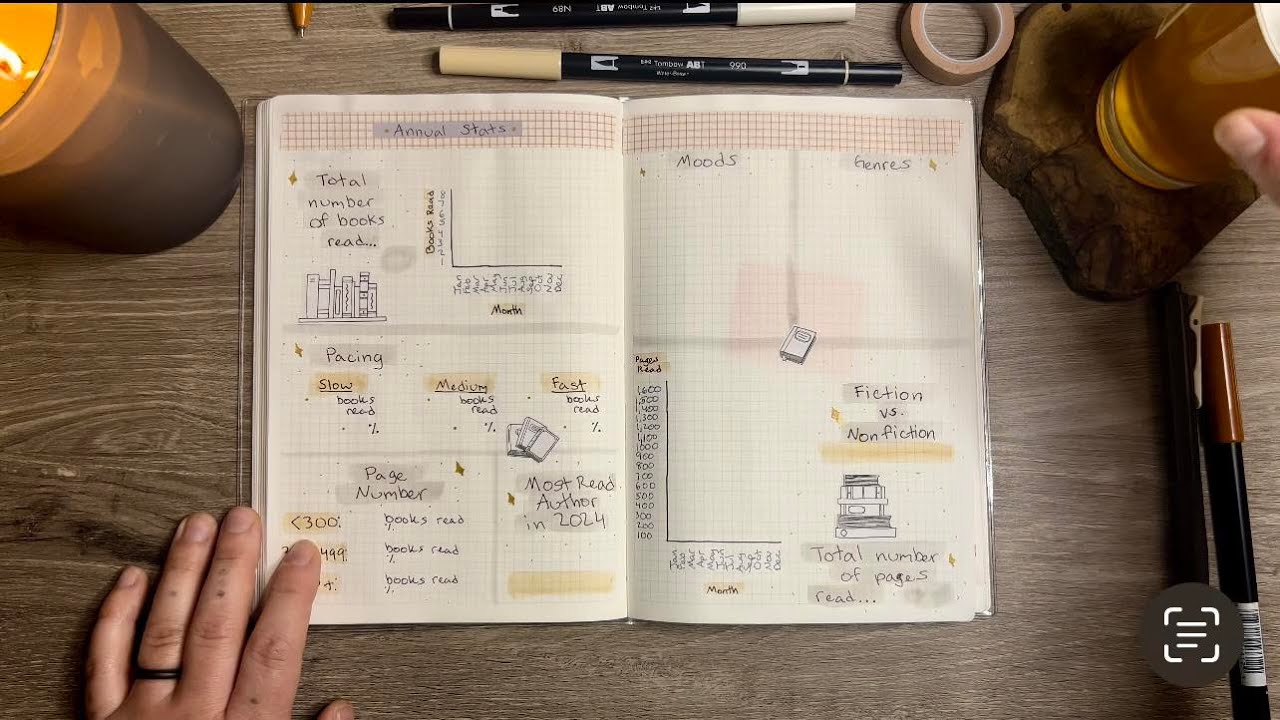 N89 Tombow ABT
Tombow ABT 990
Annual Stats
Total
number
of books
read...
Books Read
8
7
6
5
4
3
2
1
Month
Pacing
Slow
books
read
%
Medium
books
read
%
Fast
books
read
%
Page
Number
<300: books read
%
499: books read
%
+: books read
%
Most Read
Author
in 2024
Moods
Genres
Pages
Read
1,600
1,500
1,400
1,300
1,200
1,100
1000
900
800
700
600
500
400
300
200
100
Month
Fiction
vs.
Nonfiction
Total number
of pages
read...